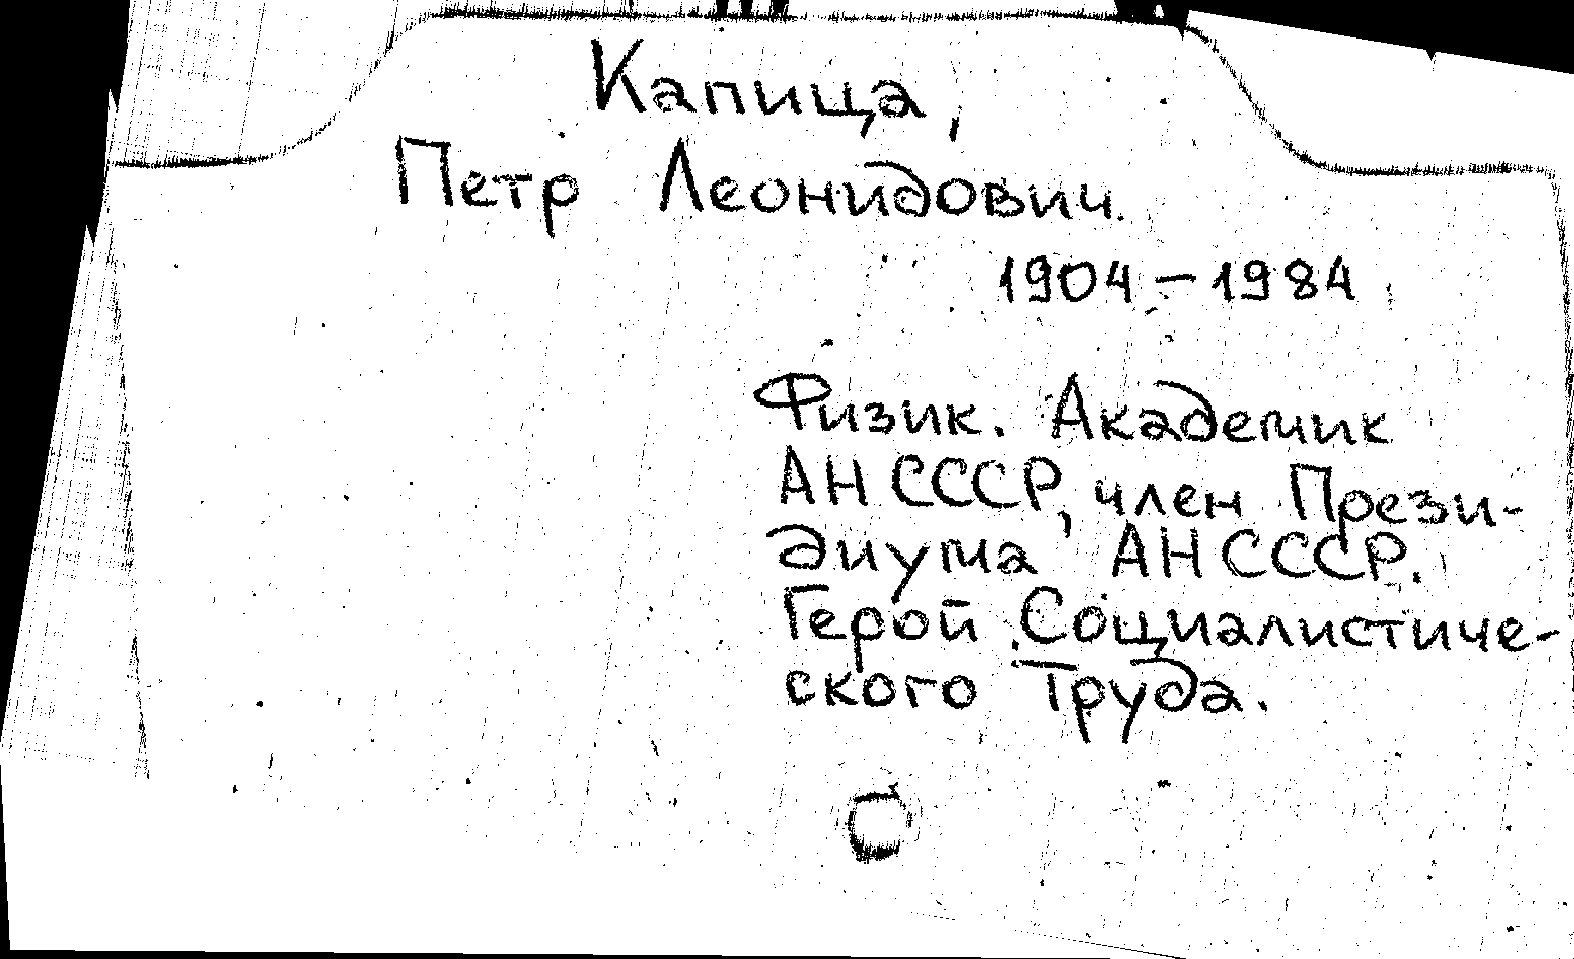 Капица,
Петр Леонидович
1904 – 1984
Физик. Академик
АН СССР, член Прези-
диума АН СССР.
Герой Социалистиче-
ского Труда.